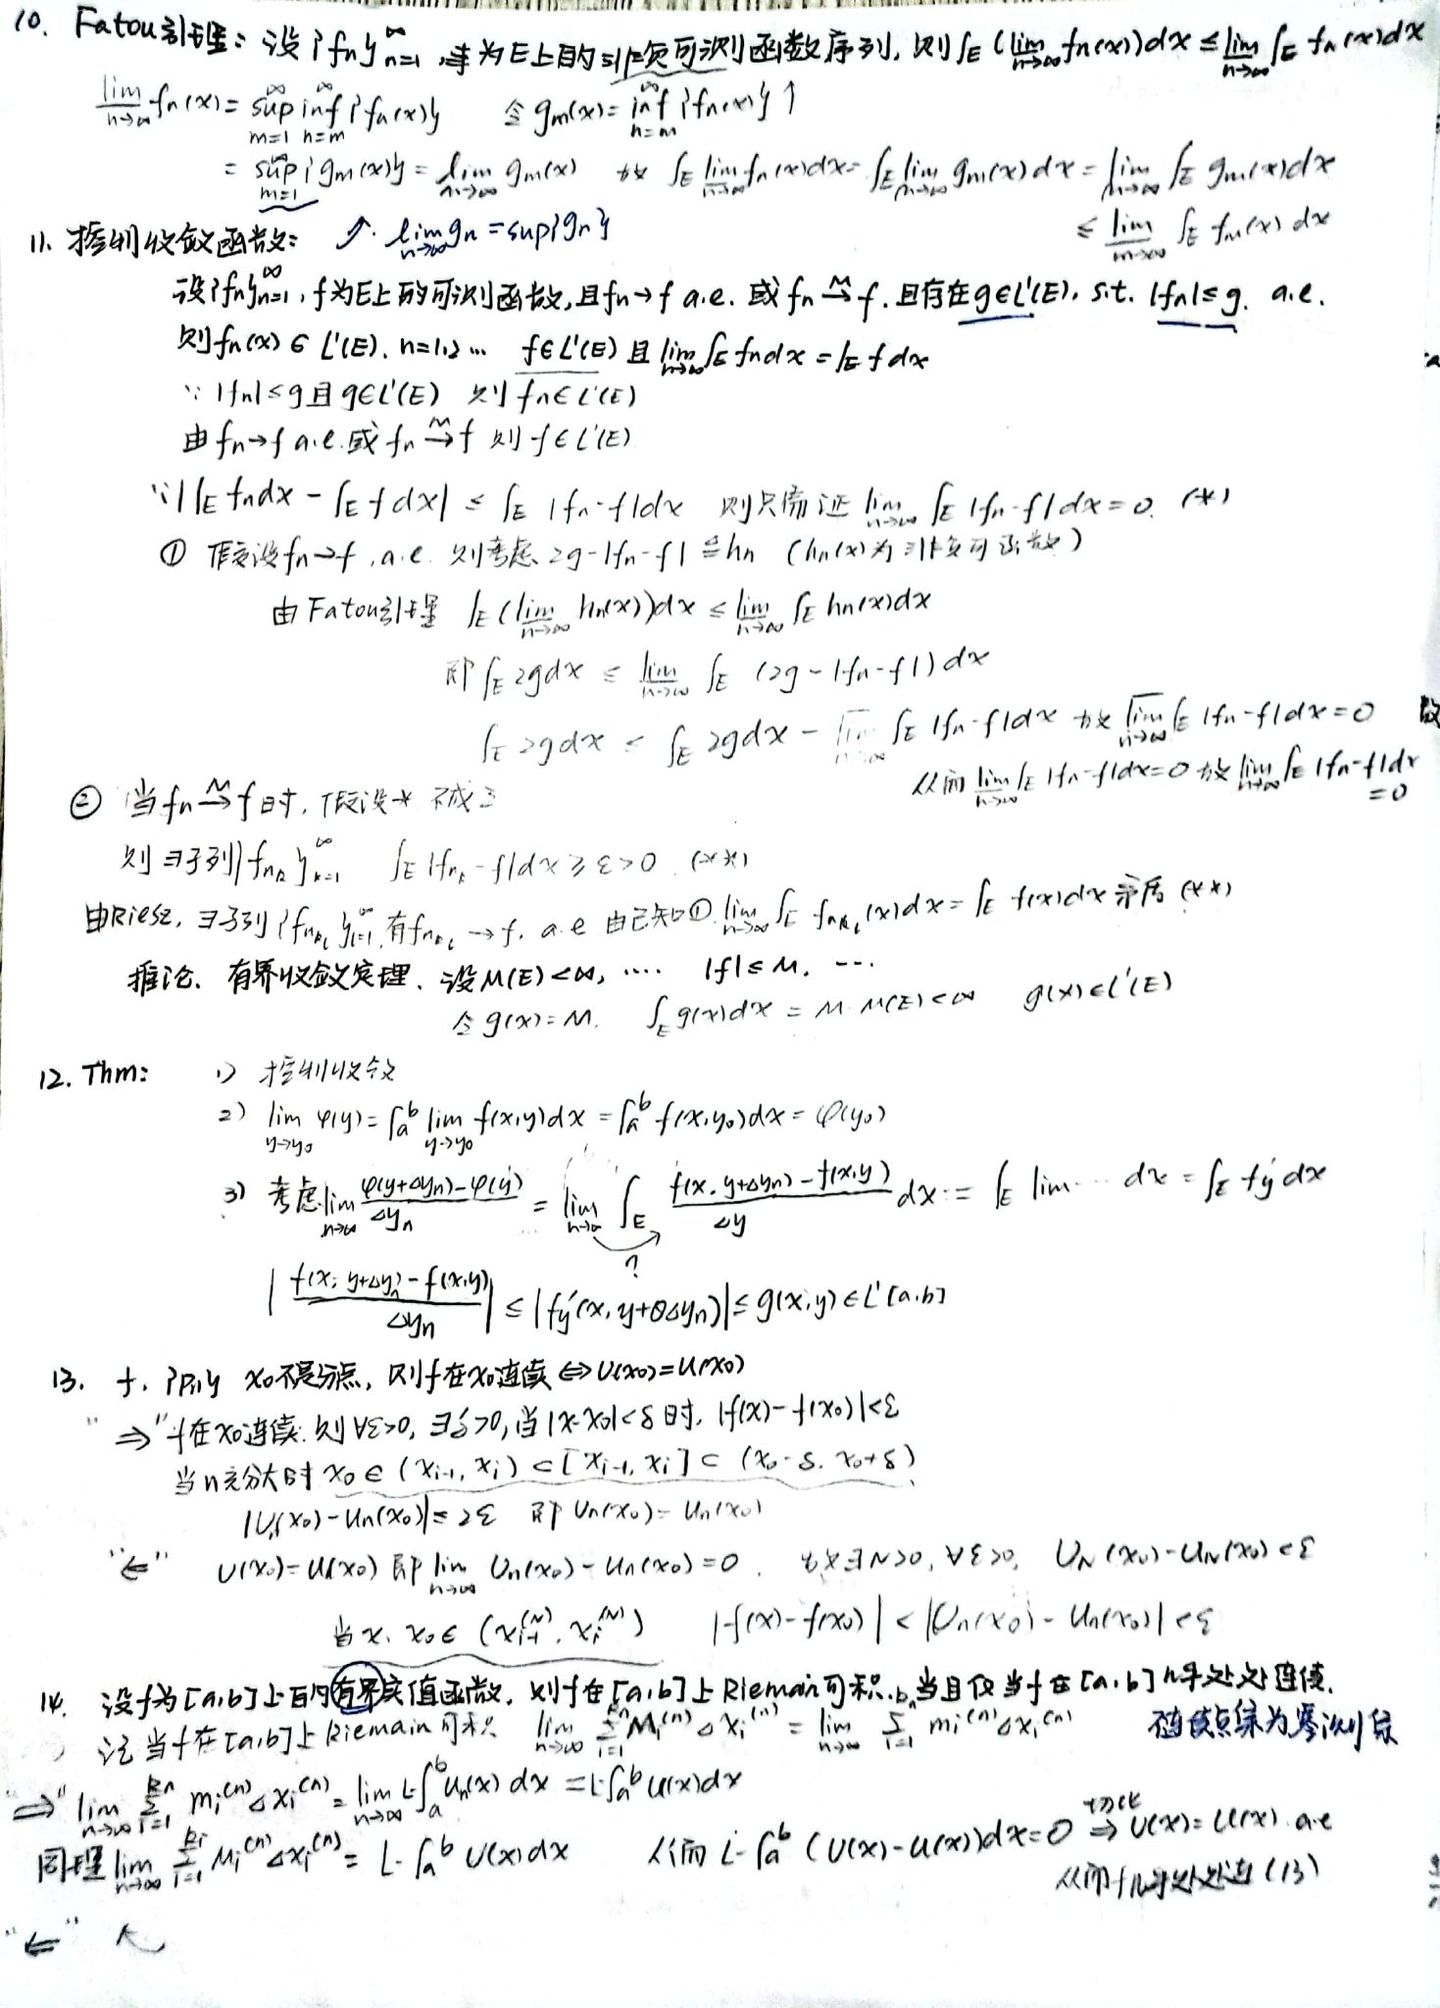 10. Fatou引理: 设{fn}n=1^∞ 为E上的非负可测函数序列, 则∫E (lim n→∞ fn(x))dx ≤ lim n→∞ ∫E fn(x)dx
lim n→∞ fn(x) = sup m=1^∞ inf n=m^∞ {fn(x)} 令 gm(x) = inf n=m^∞ {fn(x)} ↑
= sup m=1^∞ {gm(x)} = lim m→∞ gm(x) 故 ∫E lim n→∞ fn(x)dx = ∫E lim m→∞ gm(x)dx = lim m→∞ ∫E gm(x)dx
≤ lim m→∞ ∫E fm(x) dx
11. 控制收敛函数: ↗. lim n→∞ gn = sup{gn}
设{fn}n=1^∞, f为E上的可测函数, 且fn→f a.e. 或 fn →^M f. 且存在g∈L'(E), s.t. |fn|≤g. a.e.
则fn(x)∈L'(E), n=1,2... f∈L'(E) 且 lim n→∞ ∫E fndx = ∫E fdx
∵ |fn|≤g且g∈L'(E) 则fn∈L'(E)
由fn→f a.e.或 fn →^M f 则f∈L'(E)
∵ |∫E fndx - ∫E fdx| ≤ ∫E |fn-f|dx 则只需证 lim n→∞ ∫E |fn-f|dx=0. (*)
① 假设fn→f, a.e. 则考虑 2g-|fn-f| ≜ hn (hn(x)为非负可函数)
由Fatou引理 ∫E (lim n→∞ hn(x))dx ≤ lim n→∞ ∫E hn(x)dx
即∫E 2gdx ≤ lim n→∞ ∫E (2g-|fn-f|)dx
∫E 2gdx ≤ ∫E 2gdx - lim n→∞ ∫E |fn-f|dx 故 lim n→∞ ∫E |fn-f|dx=0
从而 lim n→∞ ∫E |fn-f|dx=0 故 lim n→∞ ∫E |fn-f|dx =0
② 当fn →^M f时, 假设* 不成立
则∃子列{fnk}k=1^∞ ∫E |fnk-f|dx ≥ ε>0 (**)
由Riesz, ∃子列{fnki}i=1^∞, 有fnki→f. a.e 由已知① lim n→∞ ∫E fnki(x)dx = ∫E f(x)dx 矛盾 (**)
推论. 有界收敛定理. 设M(E)<∞, .... |f|≤M. ...
令g(x)=M. ∫E g(x)dx = M·M(E)<∞ g(x)∈L'(E)
12. Thm: 1) 控制收敛
2) lim y→y0 φ(y) = ∫a^b lim y→y0 f(x,y)dx = ∫a^b f(x,y0)dx = φ(y0)
3) 考虑 lim n→∞ (φ(y+Δyn)-φ(y))/Δyn = lim n→∞ ∫E (f(x,y+Δyn)-f(x,y))/Δy dx = ∫E lim ... dx = ∫E f'y dx
?
|(f(x,y+Δyn)-f(x,y))/Δyn| ≤ |f'y(x,y+θΔyn)| ≤ g(x,y)∈L'[a,b]
13. f. {Pn} x0不是分点, 则f在x0连续 ⇔ U(x0)=u(x0)
"⇒" f在x0连续. 则∀ε>0, ∃δ>0, 当|x-x0|<δ时, |f(x)-f(x0)|<ε
当n充分大时 x0∈(xi-1, xi)⊂[xi-1, xi]⊂(x0-δ, x0+δ)
|Un(x0)-un(x0)|≤2ε 即 Un(x0)=un(x0)
"⇐" U(x0)=u(x0) 即 lim n→∞ Un(x0)-un(x0)=0. 故∃N>0, ∀ε>0, UN(x0)-uN(x0)<ε
当x, x0∈(xi-1^(N), xi^(N)) |f(x)-f(x0)|<|Un(x0)-un(x0)|<ε
14. 设f为[a,b]上的有界实值函数, 则f在[a,b]上Riemain可积. 当且仅当f在[a,b]几乎处处连续.
记 当f在[a,b]上Riemain可积 lim n→∞ Σ i=1^kn Mi^(n)Δxi^(n) = lim n→∞ Σ i=1 mi^(n)Δxi^(n) 点集为零测集
"⇒" lim n→∞ Σ i=1^kn mi^(n)Δxi^(n) = lim n→∞ L-∫a^b un(x)dx = L-∫a^b u(x)dx
同理 lim n→∞ Σ i=1 Mi^(n)Δxi^(n) = L-∫a^b U(x)dx 从而 L-∫a^b (U(x)-u(x))dx=0 ⇒ U(x)=u(x) a.e
从而f几乎处处连 (13)
"⇐"